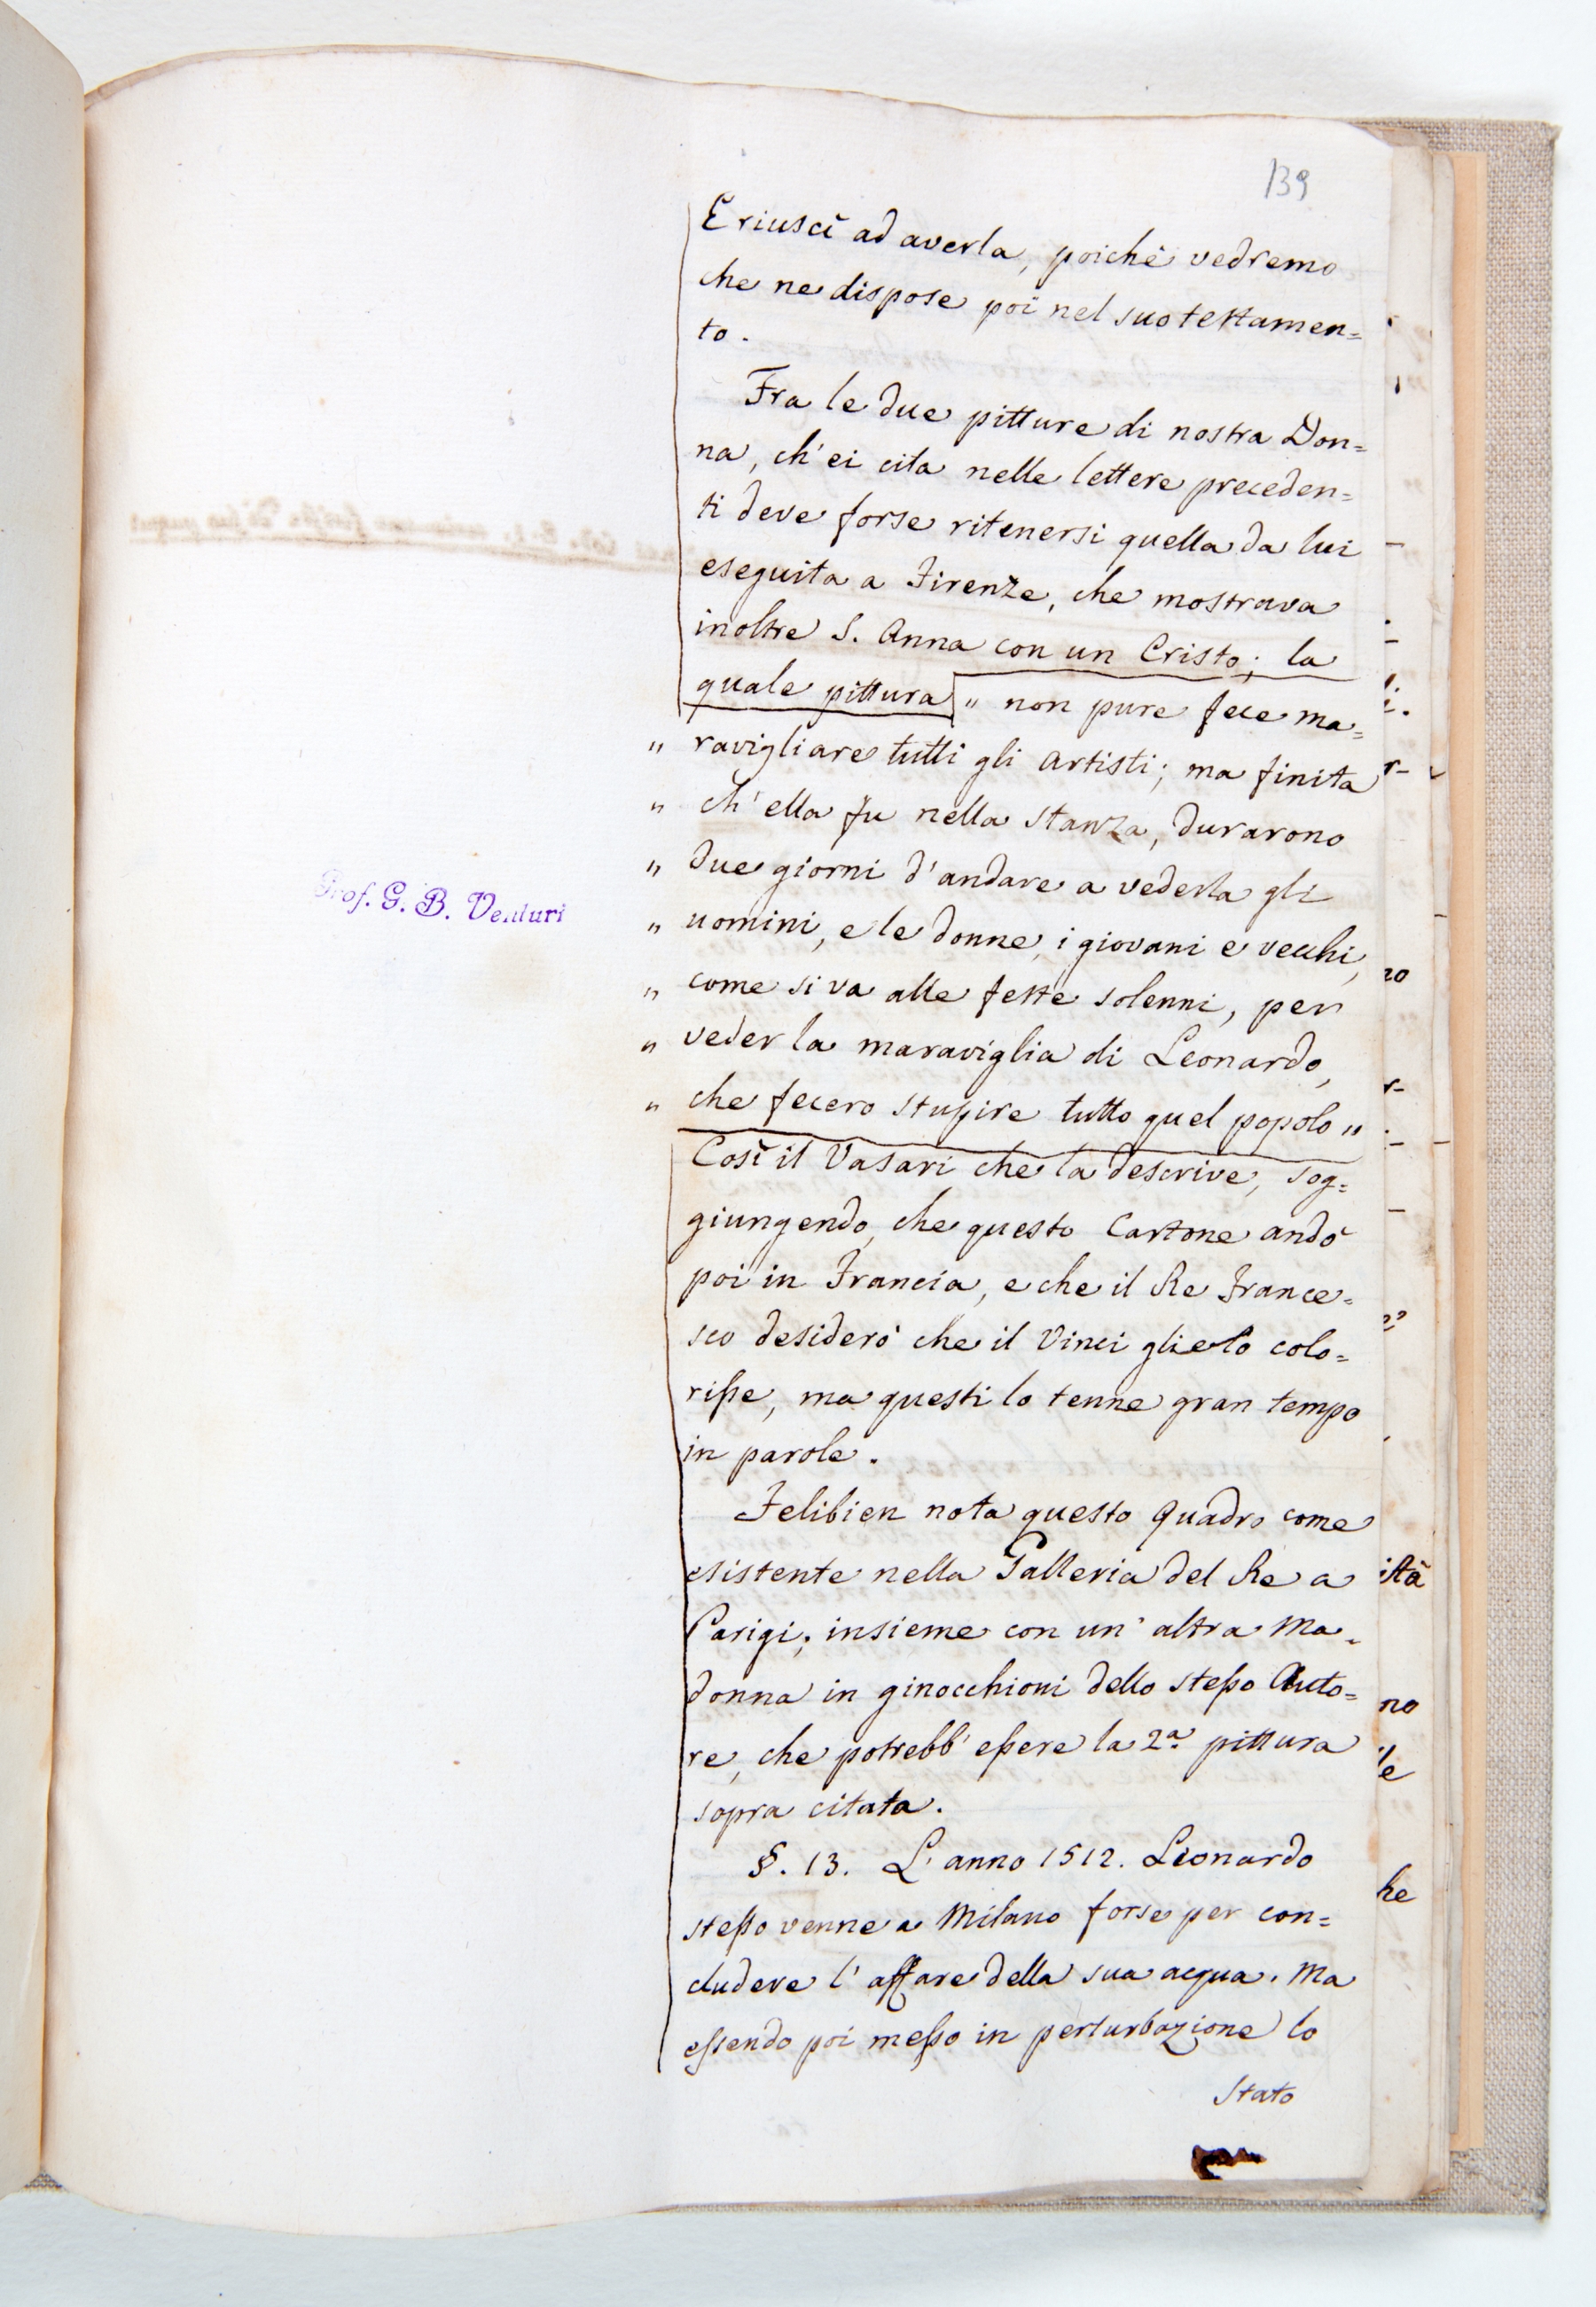 139
E riuscì ad averla, poichè vedremo
che ne dispose poi nel suo testamen=
to.
Fra le due pitture di nostra Don=
na, ch'ei cita nelle lettere preceden=
ti deve forse ritenersi quella da lui
eseguita a Firenze, che mostrava
inoltre S. Anna con un Cristo; la
quale pittura " non pure fece ma=
" ravigliare tutti gli artisti; ma finita
" ch'ella fu nella stanza, durarono
" due giorni d'andare a vederla gli
" uomini, e le donne, i giovani e vecchi,
" come si va alle feste solenni, per
" veder la maraviglia di Leonardo,
" che fecero stupire tutto quel popolo "
Così il Vasari che la descrive, sog=
giungendo, che questo Cartone andò
poi in Francia, e che il Re France=
sco desiderò che il Vinci glielo colo=
risse, ma questi lo tenne gran tempo
in parole.
Felibien nota questo quadro come
esistente nella Galleria del Re a
Parigi; insieme con un' altra Ma=
donna in ginocchioni dello stesso Auto=
re, che potrebb'essere la 2a. pittura
sopra citata.
§. 13. L'anno 1512. Leonardo
stesso venne a Milano forse per con=
cludere l'affare della sua acqua. Ma
essendo poi messo in perturbazione lo
stato
Prof. G. B. Venturi
no
ità
no
le
he